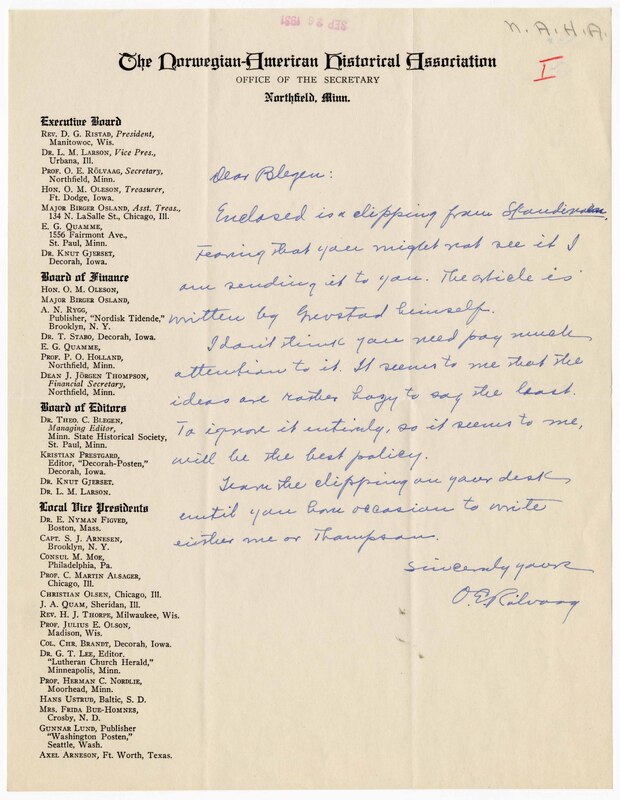 SEP 26 1931
N. A. H. A.
I
The Norwegian-American Historical Association
OFFICE OF THE SECRETARY
Northfield, Minn.
Executive Board
REV. D. G. RISTAD, President,
Manitowoc, Wis.
DR. L. M. LARSON, Vice Pres.,
Urbana, Ill.
PROF. O. E. RÖLVAAG, Secretary,
Northfield, Minn.
HON. O. M. OLESON, Treasurer,
Ft. Dodge, Iowa.
MAJOR BIRGER OSLAND, Asst. Treas.,
134 N. LaSalle St., Chicago, Ill.
E. G. QUAMME,
1556 Fairmont Ave.,
St. Paul, Minn.
DR. KNUT GJERSET,
Decorah, Iowa.
Board of Finance
HON. O. M. OLESON,
MAJOR BIRGER OSLAND,
A. N. RYGG,
Publisher, "Nordisk Tidende,"
Brooklyn, N. Y.
DR. T. STABO, Decorah, Iowa.
E. G. QUAMME,
PROF. P. O. HOLLAND,
Northfield, Minn.
DEAN J. JÖRGEN THOMPSON,
Financial Secretary,
Northfield, Minn.
Board of Editors
DR. THEO. C. BLEGEN,
Managing Editor,
Minn. State Historical Society,
St. Paul, Minn.
KRISTIAN PRESTGARD,
Editor, "Decorah-Posten,"
Decorah, Iowa.
DR. KNUT GJERSET.
DR. L. M. LARSON.
Local Vice Presidents
DR. E. NYMAN FIGVED,
Boston, Mass.
CAPT. S. J. ARNESEN,
Brooklyn, N. Y.
CONSUL M. MOE,
Philadelphia, Pa.
PROF. C. MARTIN ALSAGER,
Chicago, Ill.
CHRISTIAN OLSEN, Chicago, Ill.
J. A. QUAM, Sheridan, Ill.
REV. H. J. THORPE, Milwaukee, Wis.
PROF. JULIUS E. OLSON,
Madison, Wis.
COL. CHR. BRANDT, Decorah, Iowa.
DR. G. T. LEE, Editor.
"Lutheran Church Herald,"
Minneapolis, Minn.
PROF. HERMAN C. NORDLIE,
Moorhead, Minn.
HANS USTRUD, Baltic, S. D.
MRS. FRIDA BUE-HOMNES,
Crosby, N. D.
GUNNAR LUND, Publisher
"Washington Posten,"
Seattle, Wash.
AXEL ARNESON, Ft. Worth, Texas.
Dear Blegen:
Enclosed is a clipping from Skandinaven.
Fearing that you might not see it I
am sending it to you. The article is
written by Grevstad himself.
I don't think you need pay much
attention to it. It seems to me that the
ideas are rather hazy to say the least.
To ignore it entirely, so it seems to me,
will be the best policy.
Leave the clipping on your desk
until you have occasion to write
either me or Thompson.
Sincerely yours
O. E. Rölvaag